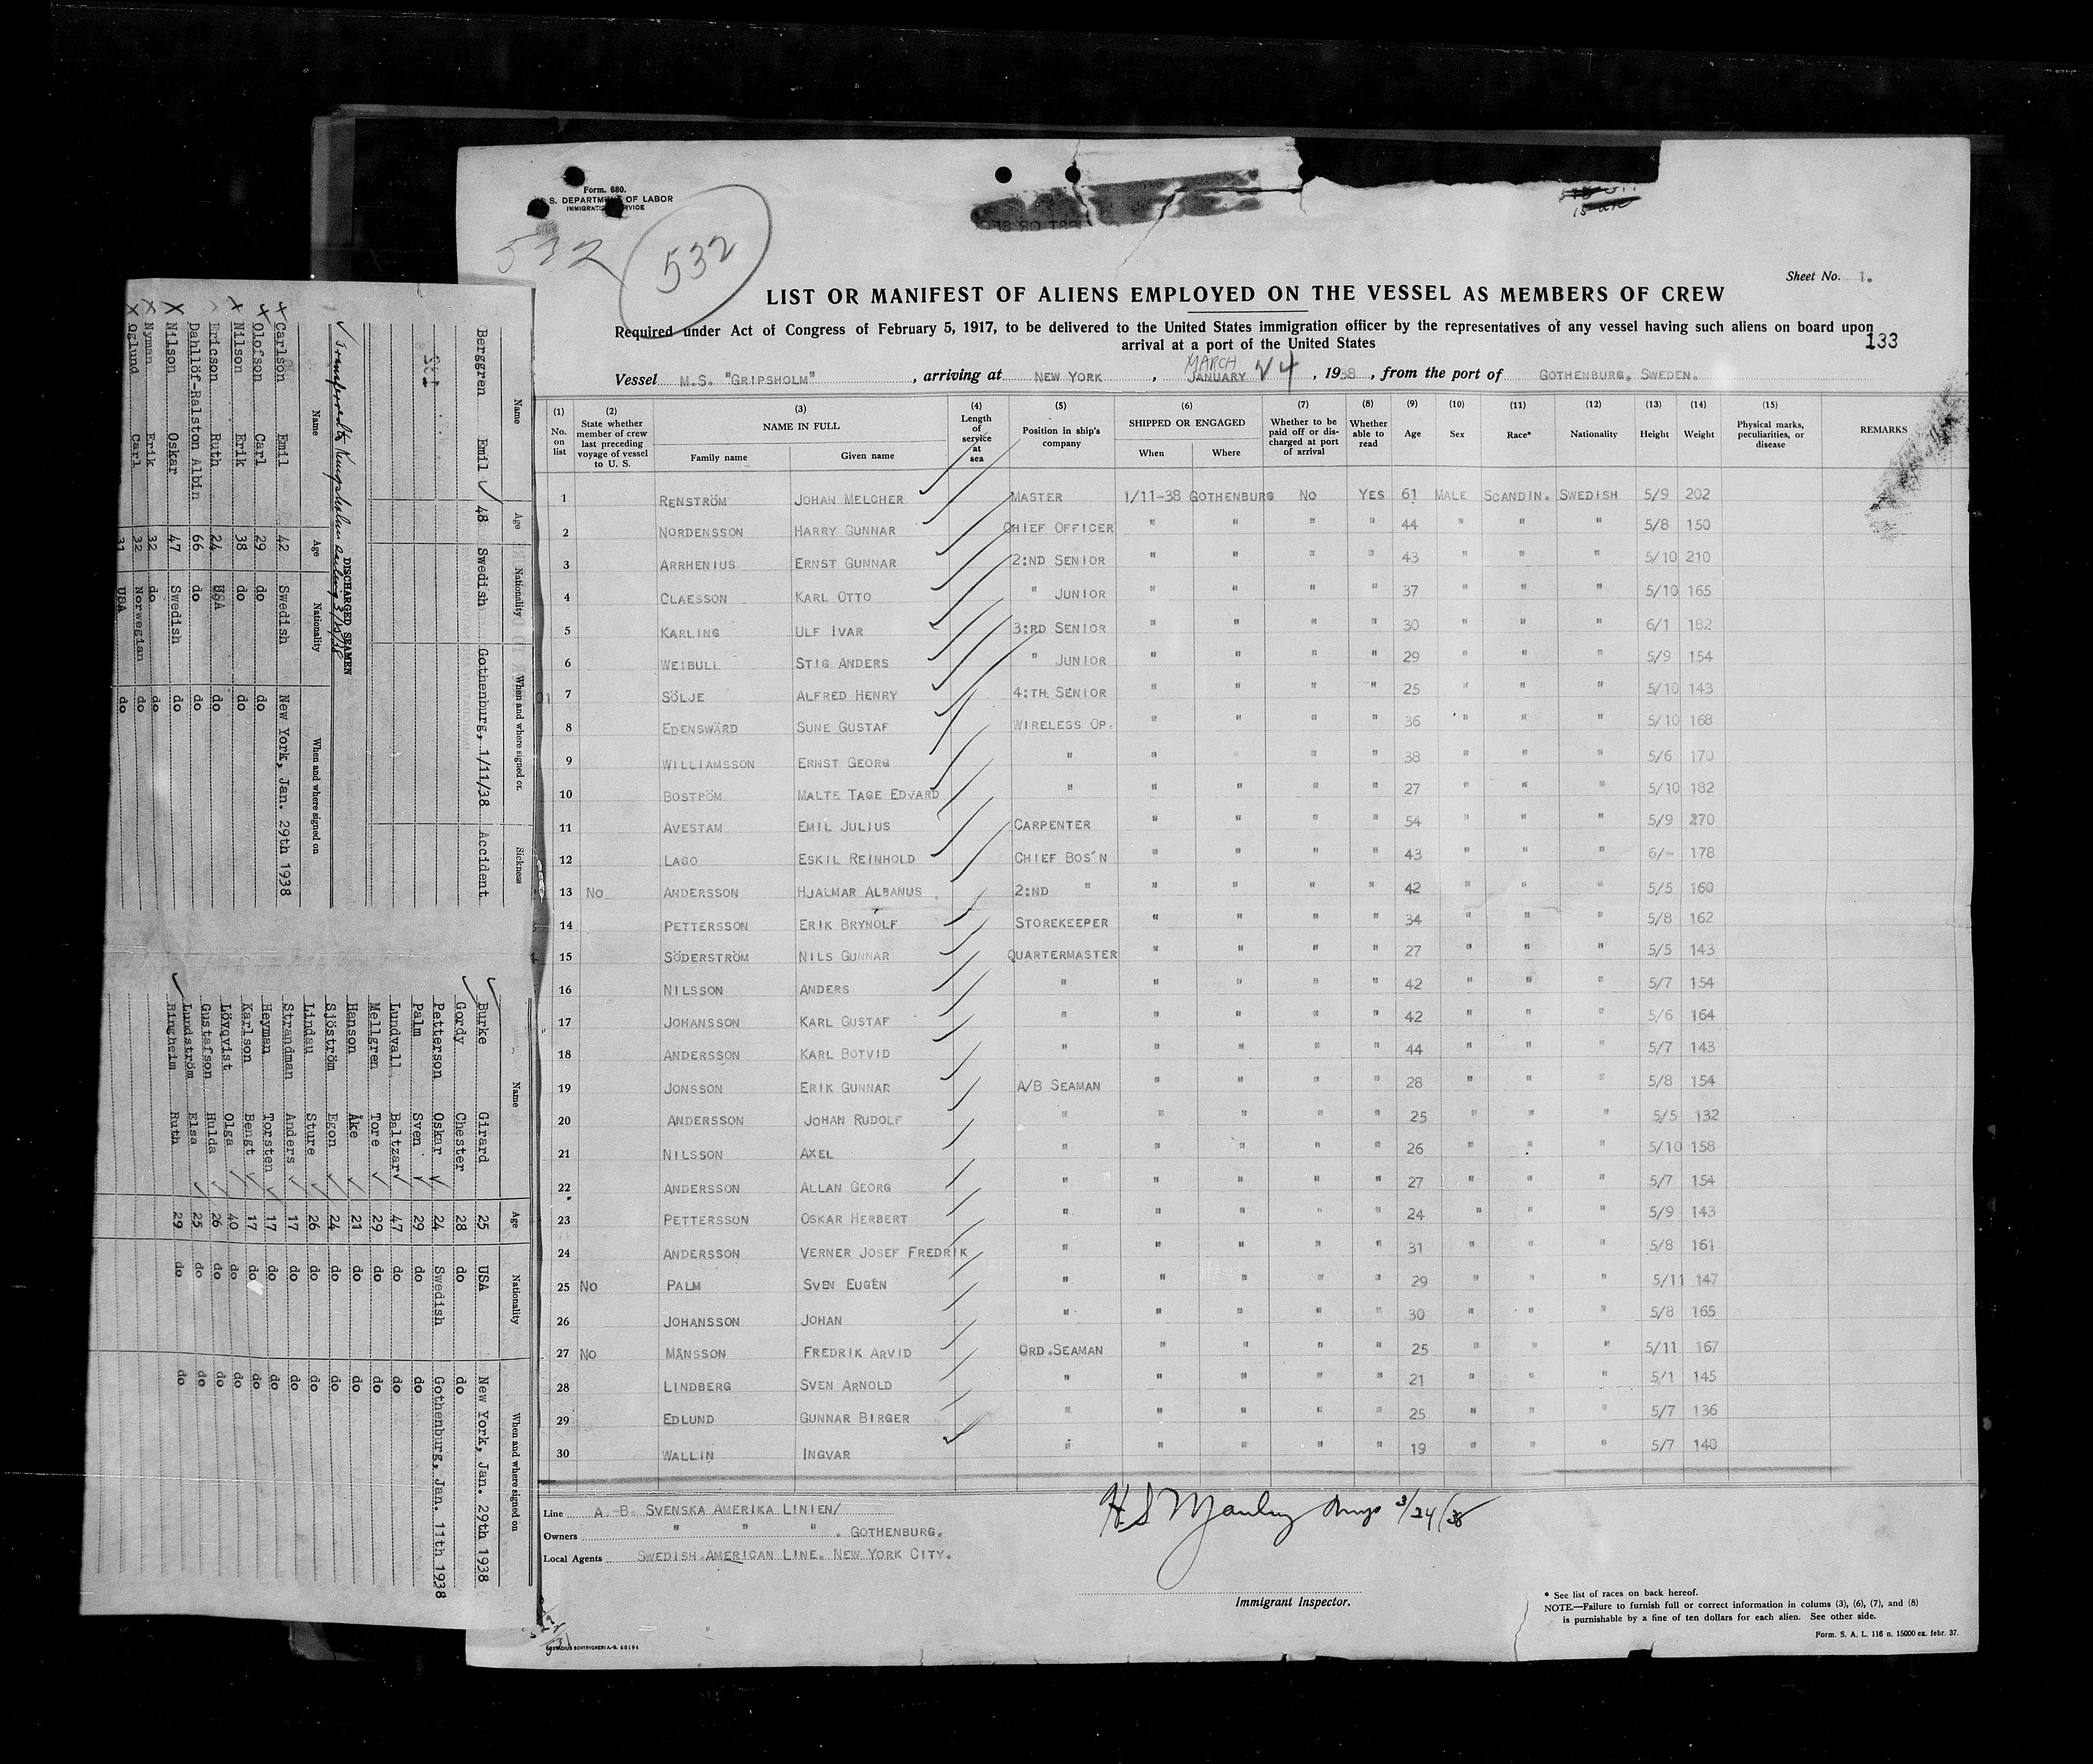 Form. 680.
S. DEPARTMENT OF LABOR
IMMIGRATION SERVICE
532
532
Sheet No. 1.
LIST OR MANIFEST OF ALIENS EMPLOYED ON THE VESSEL AS MEMBERS OF CREW
Required under Act of Congress of February 5, 1917, to be delivered to the United States immigration officer by the representatives of any vessel having such aliens on board upon
arrival at a port of the United States
133
MARCH
Vessel M.S. "GRIPSHOLM", arriving at NEW YORK, JANUARY 24, 1938, from the port of GOTHENBURG, SWEDEN.
(1) No. on list (2) State whether member of crew last preceding voyage of vessel to U. S. (3) NAME IN FULL Family name Given name (4) Length of service at sea (5) Position in ship's company (6) SHIPPED OR ENGAGED When Where (7) Whether to be paid off or discharged at port of arrival (8) Whether able to read (9) Age (10) Sex (11) Race* (12) Nationality (13) Height (14) Weight (15) Physical marks, peculiarities, or disease REMARKS
1 RENSTRÖM JOHAN MELCHER MASTER 1/11-38 GOTHENBURG NO YES 61 MALE SCANDIN. SWEDISH 5/9 202
2 NORDENSSON HARRY GUNNAR CHIEF OFFICER " " " " 44 " " " 5/8 150
3 ARRHENIUS ERNST GUNNAR 2:ND SENIOR " " " " 43 " " " 5/10 210
4 CLAESSON KARL OTTO " JUNIOR " " " " 37 " " " 5/10 165
5 KARLING ULF IVAR 3:RD SENIOR " " " " 30 " " " 6/1 182
6 WEIBULL STIG ANDERS " JUNIOR " " " " 29 " " " 5/9 154
7 SÖLJE ALFRED HENRY 4:TH SENIOR " " " " 25 " " " 5/10 143
8 EDENSWÄRD SUNE GUSTAF WIRELESS OP. " " " " 36 " " " 5/10 168
9 WILLIAMSSON ERNST GEORG " " " " 38 " " " 5/6 170
10 BOSTRÖM MALTE TAGE EDVARD " " " " " 27 " " " 5/10 182
11 AVESTAM EMIL JULIUS CARPENTER " " " " 54 " " " 5/9 270
12 LAGO ESKIL REINHOLD CHIEF BOS'N " " " " 43 " " " 6/- 178
13 No ANDERSSON HJALMAR ALBANUS 2:ND " " " " " 42 " " " 5/5 160
14 PETTERSSON ERIK BRYNOLF STOREKEEPER " " " " 34 " " " 5/8 162
15 SÖDERSTRÖM NILS GUNNAR QUARTERMASTER " " " " 27 " " " 5/5 143
16 NILSSON ANDERS " " " " " 42 " " " 5/7 154
17 JOHANSSON KARL GUSTAF " " " " " 42 " " " 5/6 164
18 ANDERSSON KARL BOTVID " " " " " 44 " " " 5/7 143
19 JONSSON ERIK GUNNAR A/B SEAMAN " " " " 28 " " " 5/8 154
20 ANDERSSON JOHAN RUDOLF " " " " " 25 " " " 5/5 132
21 NILSSON AXEL " " " " " 26 " " " 5/10 158
22 ANDERSSON ALLAN GEORG " " " " " 27 " " " 5/7 154
23 PETTERSSON OSKAR HERBERT " " " " " 24 " " " 5/9 143
24 ANDERSSON VERNER JOSEF FREDRIK " " " " " 31 " " " 5/8 161
25 No PALM SVEN EUGÉN " " " " " 29 " " " 5/11 147
26 JOHANSSON JOHAN " " " " " 30 " " " 5/8 165
27 No MÅNSSON FREDRIK ARVID ORD.SEAMAN " " " " 25 " " " 5/11 167
28 LINDBERG SVEN ARNOLD " " " " " 21 " " " 5/1 145
29 EDLUND GUNNAR BIRGER " " " " " 25 " " " 5/7 136
30 WALLIN INGVAR " " " " " 19 " " " 5/7 140
Line A.-B. SVENSKA AMERIKA LINIEN/
Owners " " " . GOTHENBURG.
Local Agents SWEDISH AMERICAN LINE. NEW YORK CITY.
3/24/38
Immigrant Inspector.
* See list of races on back hereof.
NOTE.—Failure to furnish full or correct information in colums (3), (6), (7), and (8)
is punishable by a fine of ten dollars for each alien. See other side.
Form. S. A. L. 116 n. 15000 ex. febr. 37.
Name Age Nationality When and where signed on Sickness
Berggren Emil 48 Swedish Gothenburg, 1/11/38 Accident
DISCHARGED SEAMEN
Name Age Nationality When and where signed on
Carlson Emil 42 Swedish New York, Jan. 29th 1938
Olofson Carl 29 do do
Nilson Erik 38 do do
Ericson Ruth 24 USA do
Dahllöf-Ralston Albin 66 do do
Nilson Oskar 47 Swedish do
Nyman Erik 32 do do
Oglund Carl 32 Norwegian do
31 USA do
Name Age Nationality When and where signed on
Burke Girard 25 USA New York, Jan. 29th 1938
Gordy Chester 28 do do
Petterson Oskar 24 Swedish Gothenburg, Jan. 11th 1938
Palm Sven 29 do do
Lundvall Baltzar 47 do do
Mellgren Tore 29 do do
Hanson Åke 21 do do
Sjöström Egon 24 do do
Lindau Sture 26 do do
Strandman Anders 17 do do
Heyman Torsten 17 do do
Karlson Bengt 17 do do
Lövqvist Olga 40 do do
Gustafson Hulda 26 do do
Lundström Elsa 25 do do
Ringheim Ruth 29 do do